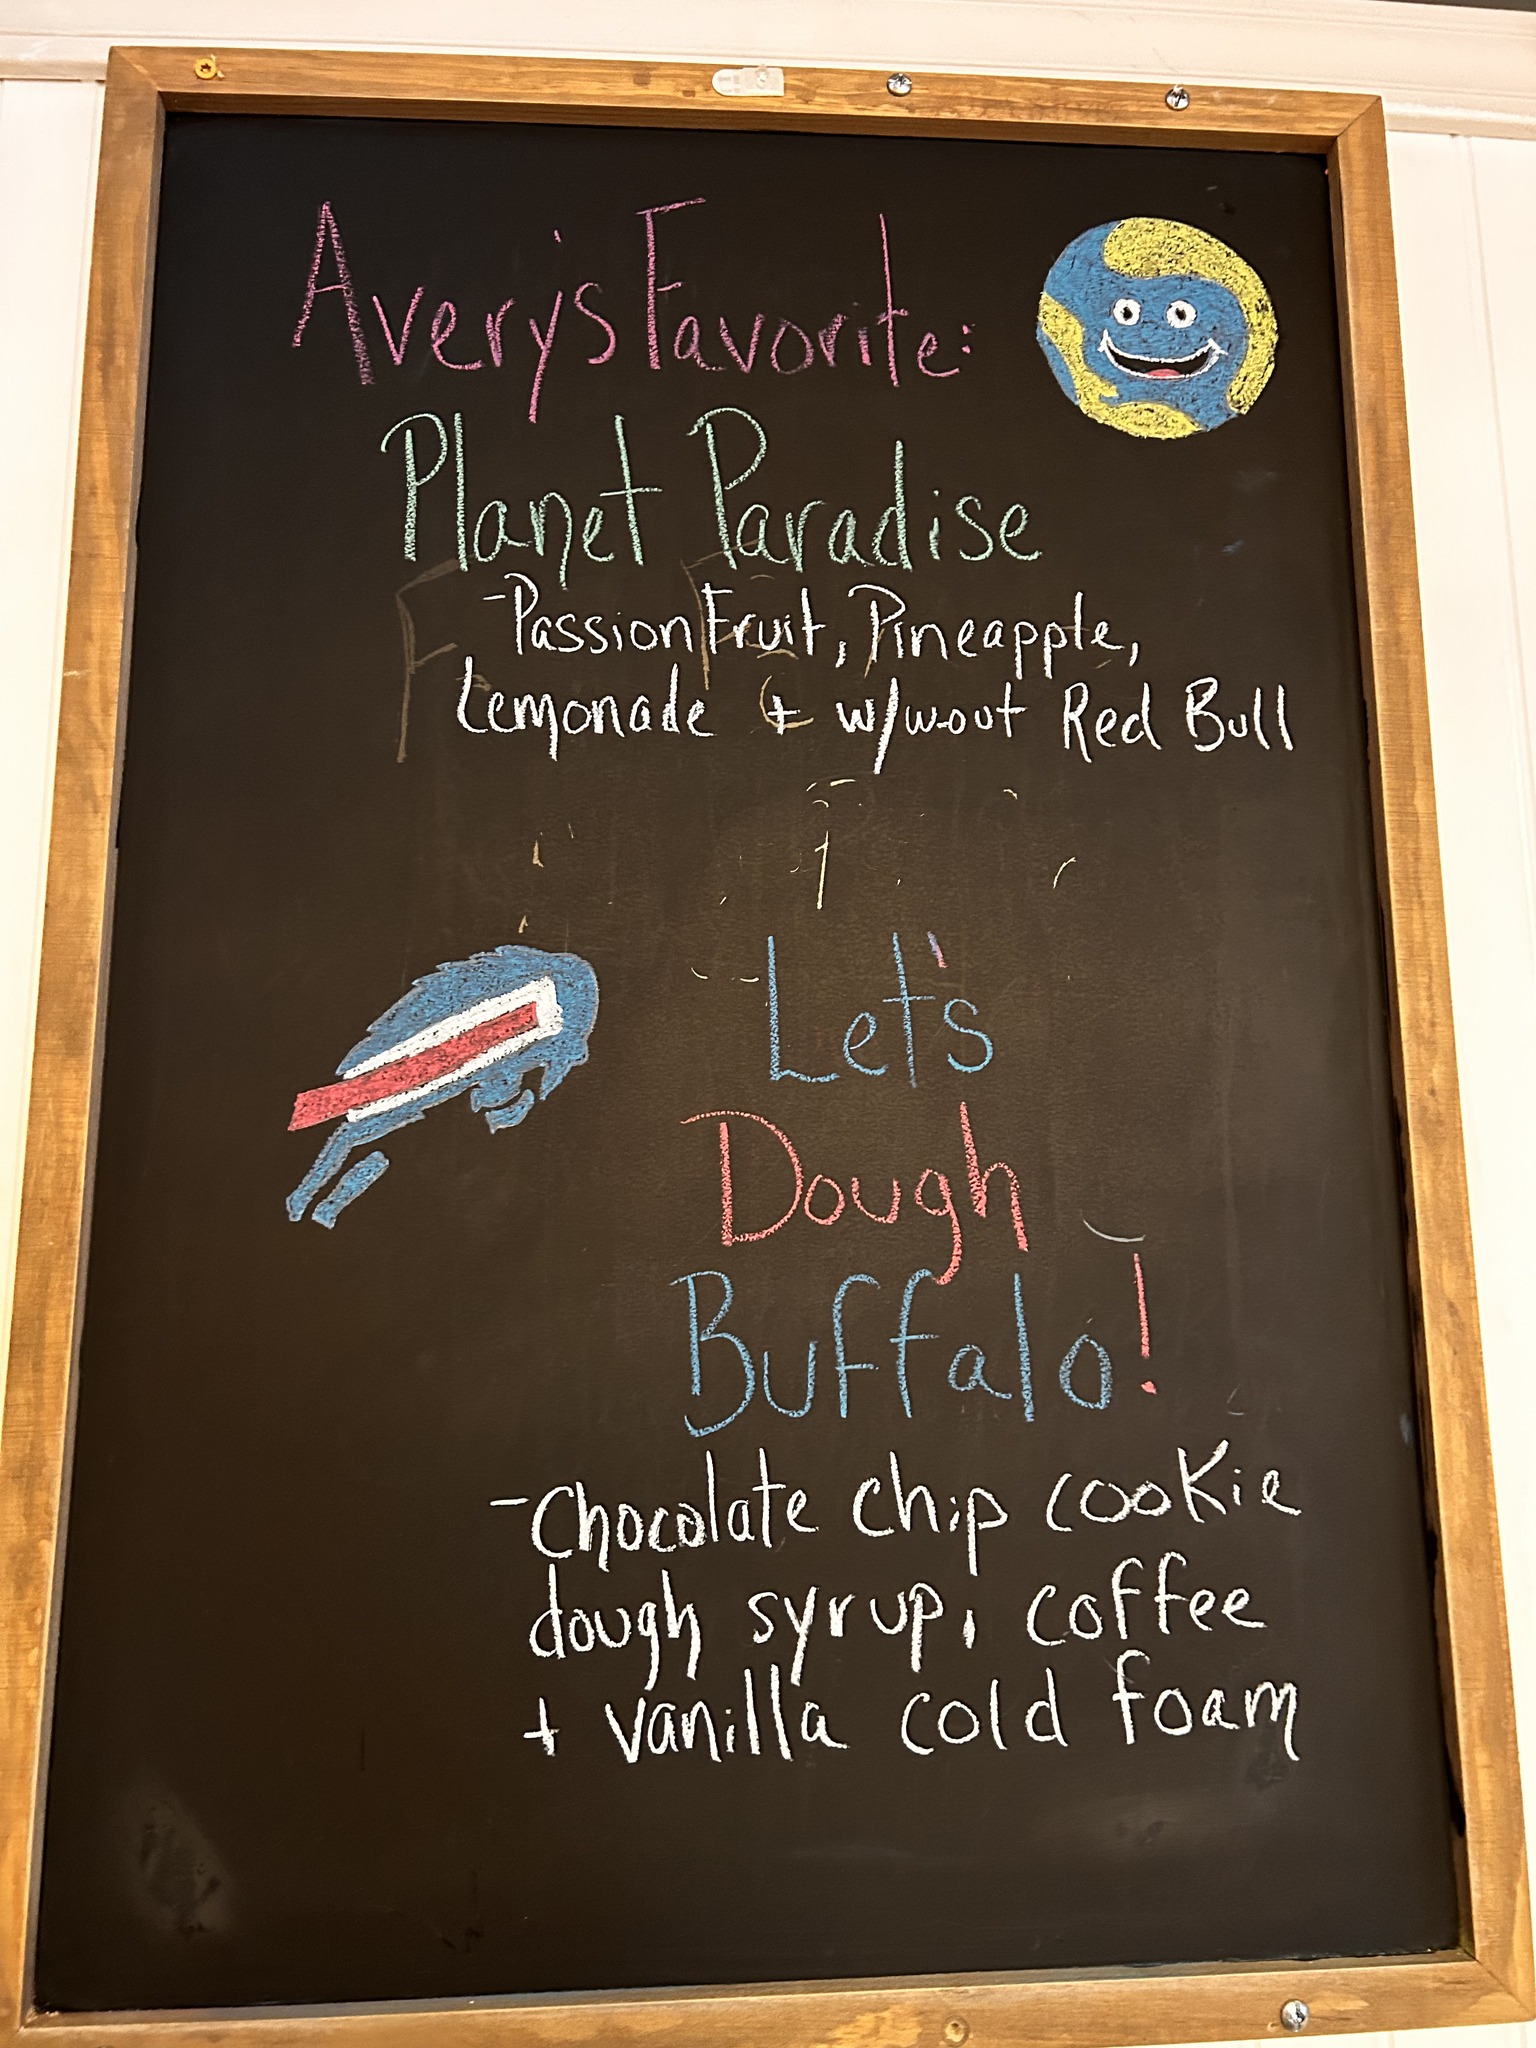 Avery's Favorite:
Planet Paradise
-Passion Fruit, Pineapple,
Lemonade + w/w.out Red Bull
Let's
Dough
Buffalo!
-Chocolate chip cookie
dough syrup, coffee
+ vanilla cold foam